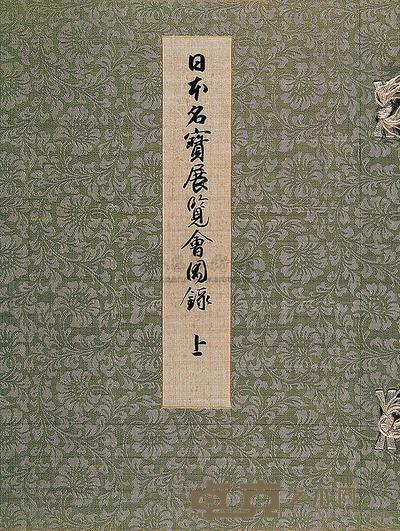 日本名寶展覽會圖錄 上